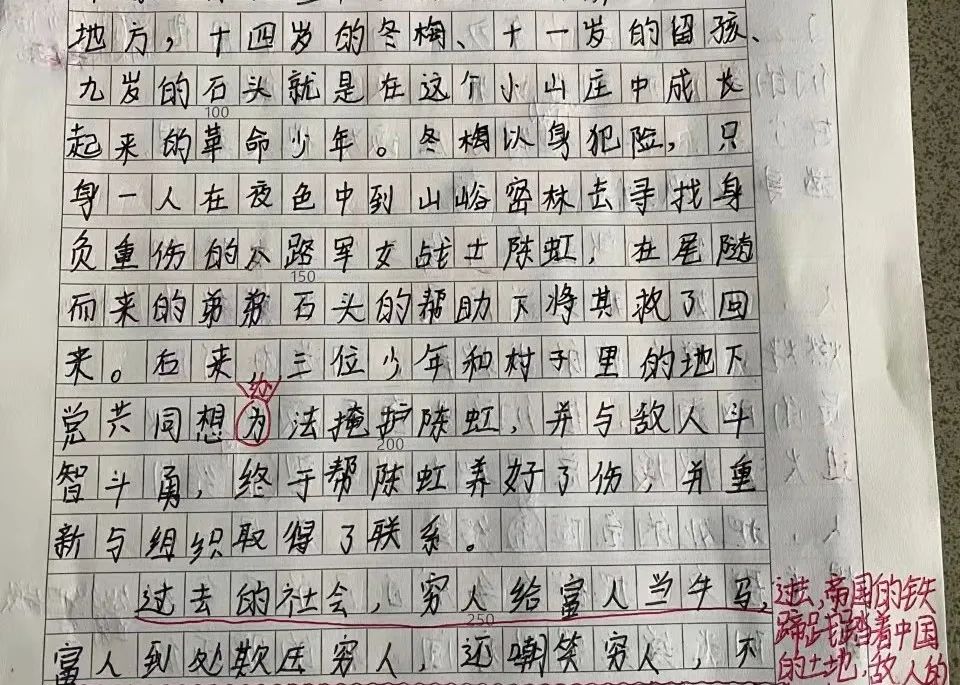 地方，十四岁的冬梅、十一岁的留孩、
九岁的石头就是在这个小山庄中成长
100
起来的革命少年。冬梅以身犯险，只
身一人在夜色中到山峪密林去寻找身
负重伤的八路军女战士陈虹，在尾随
150
而来的弟弟石头的帮助下将其救了回
来。后来，三位少年和村子里的地下
办
党共同想为法掩护陈虹，并与敌人斗
200
智斗勇，终于帮陈虹养好了伤，并重
新与组织取得了联系。
过去的社会，穷人给富人当牛马，
250
富人到处欺压穷人，还嘲笑穷人，不
过去，帝国的铁
蹄践踏着中国
的土地，敌人的